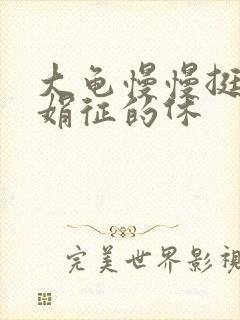 大龟慢慢挺
娟征的休
完美世界影视